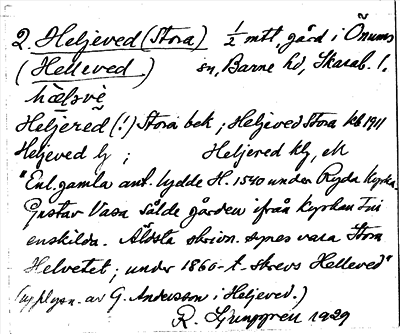 2. Heljeved (Stora) 1/2 mtl, gård i Önums
(Helleved) sn, Barne hd, Skarab. l.
hælsvè
Heljered (!) Stora bek; Heljeved Stora kb 1911
Heljeved lj; Heljered klj, eM
"Enl. gamla ant. lydde H. 1540 under Ryda kyrka.
Gustav Vasa sålde gården ifrån kyrkan till
enskilda. Äldsta skrivn. synes vara Stora
Helvetet; under 1860-t. skrevs Helleved"
(upplysn. av G. Andersson i Heljeved.)
R. Ljunggren 1929